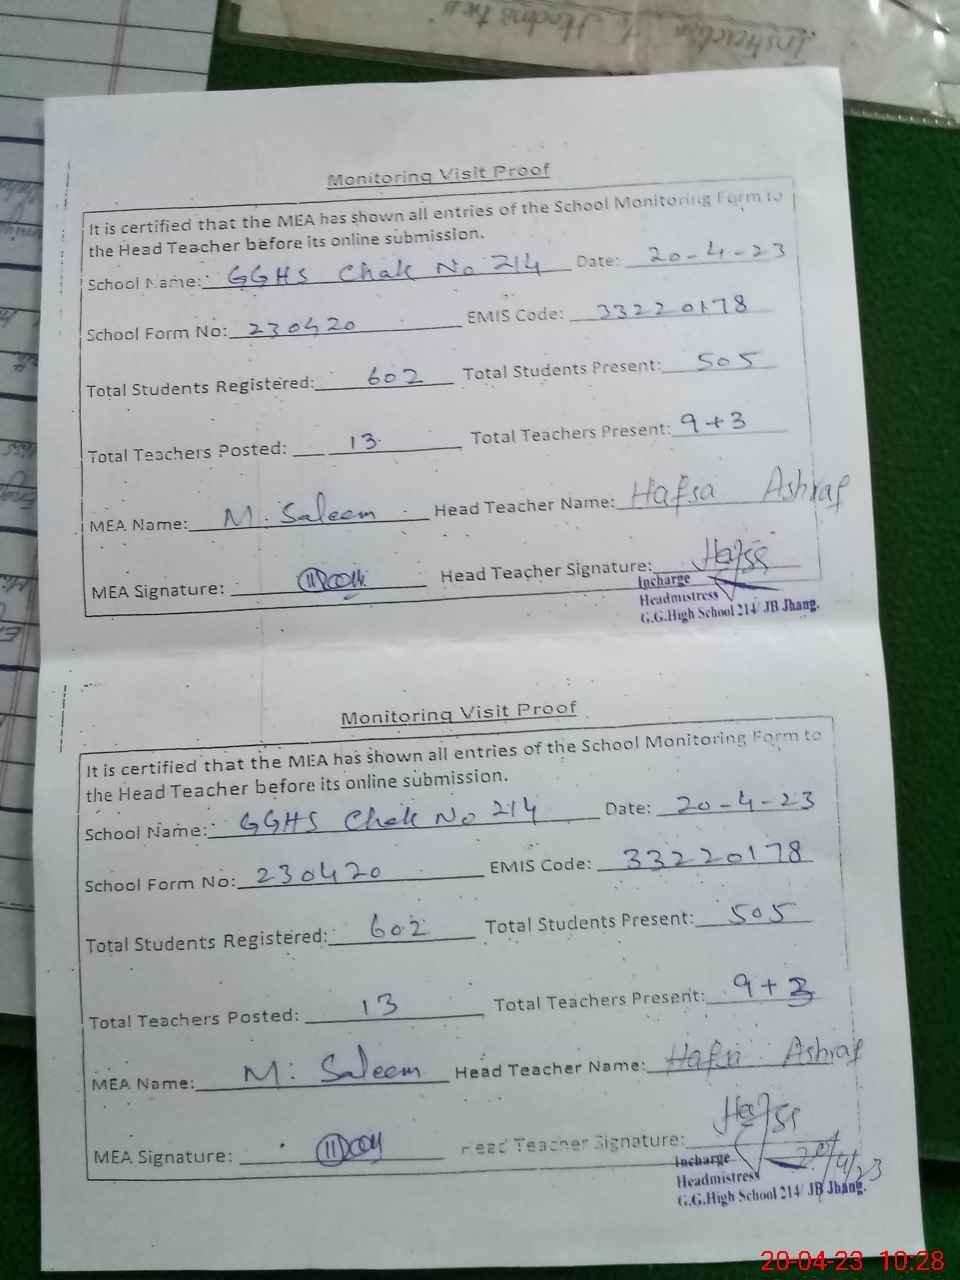 Instruction to Headmistress
Monitoring Visit Proof
It is certified that the MEA has shown all entries of the School Monitoring Form to
the Head Teacher before its online submission.
School Name: GGHS Chak No 214 Date: 20-4-23
School Form No: 230420 EMIS Code: 33220178
Total Students Registered: 602 Total Students Present: 505
Total Teachers Posted: 13 Total Teachers Present: 9+3
MEA Name: M. Saleem Head Teacher Name: Hafsa Ashraf
MEA Signature: Head Teacher Signature: Hafsa
Incharge
Headmistress
G.G.High School 214/ JB Jhang.
Monitoring Visit Proof
It is certified that the MEA has shown all entries of the School Monitoring Form to
the Head Teacher before its online submission.
School Name: GGHS Chak No 214 Date: 20-4-23
School Form No: 230420 EMIS Code: 33220178
Total Students Registered: 602 Total Students Present: 505
Total Teachers Posted: 13 Total Teachers Present: 9+3
MEA Name: M. Saleem Head Teacher Name: Hafsa Ashraf
MEA Signature: Head Teacher Signature: Hafsa
20/4/23
Incharge
Headmistress
G.G.High School 214/ JB Jhang.
20-04-23 10:28